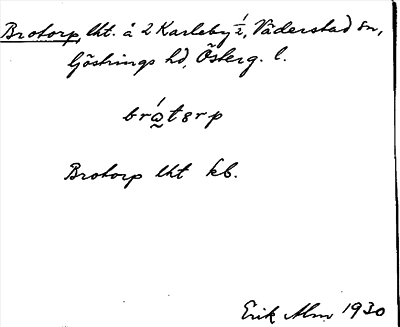 Brotorp, lht. å 2 Karleby 1/2, Väderstad sn,
Göstrings hd, Österg. l.
brótɘrp
Brotorp lht kb.
Erik Alm 1930